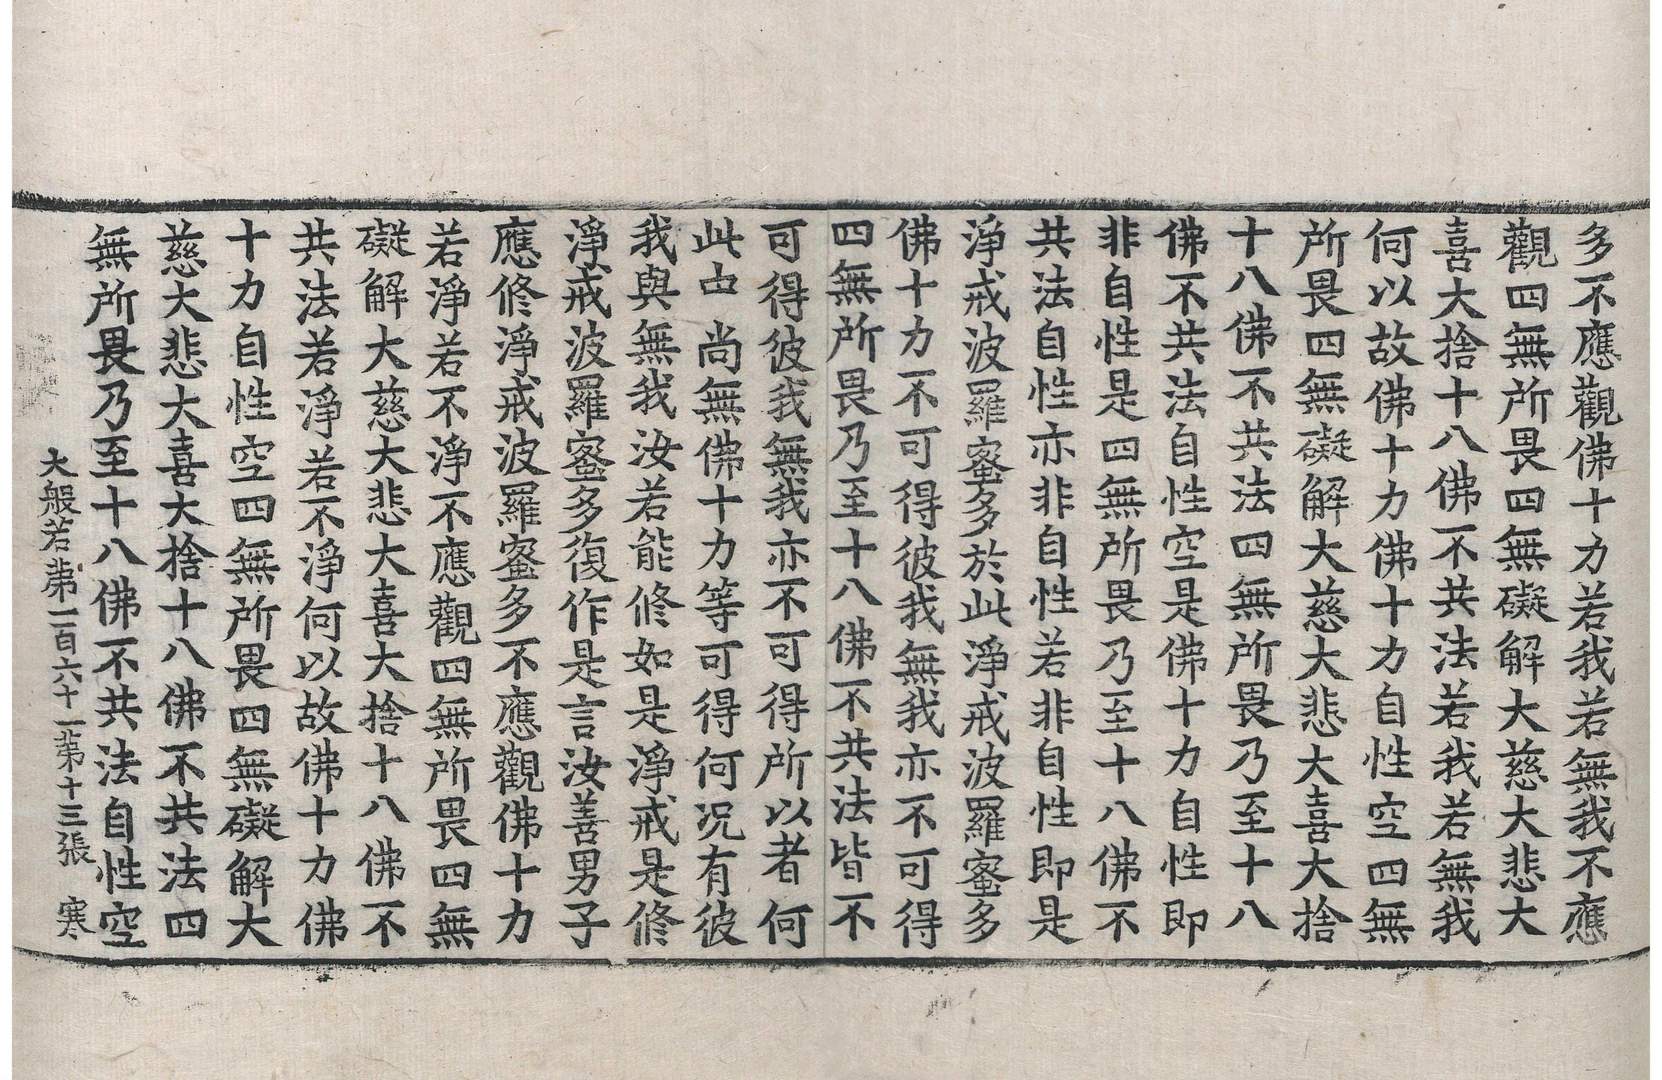 多不應觀佛十力若我若無我不應
觀四無所畏四無礙解大慈大悲大
喜大捨十八佛不共法若我若無我
何以故佛十力佛十力自性空四無
所畏四無礙解大慈大悲大喜大捨
十八佛不共法四無所畏乃至十八
佛不共法自性空是佛十力自性即
非自性是四無所畏乃至十八佛不
共法自性亦非自性若非自性即是
淨戒波羅蜜多於此淨戒波羅蜜多
佛十力不可得彼我無我亦不可得
四無所畏乃至十八佛不共法皆不
可得彼我無我亦不可得所以者何
此中尚無佛十力等可得何況有彼
我與無我汝若能修如是淨戒是修
淨戒波羅蜜多復作是言汝善男子
應修淨戒波羅蜜多不應觀佛十力
若淨若不淨不應觀四無所畏四無
礙解大慈大悲大喜大捨十八佛不
共法若淨若不淨何以故佛十力佛
十力自性空四無所畏四無礙解大
慈大悲大喜大捨十八佛不共法四
無所畏乃至十八佛不共法自性空
大般若第一百六十一第十三張 寒